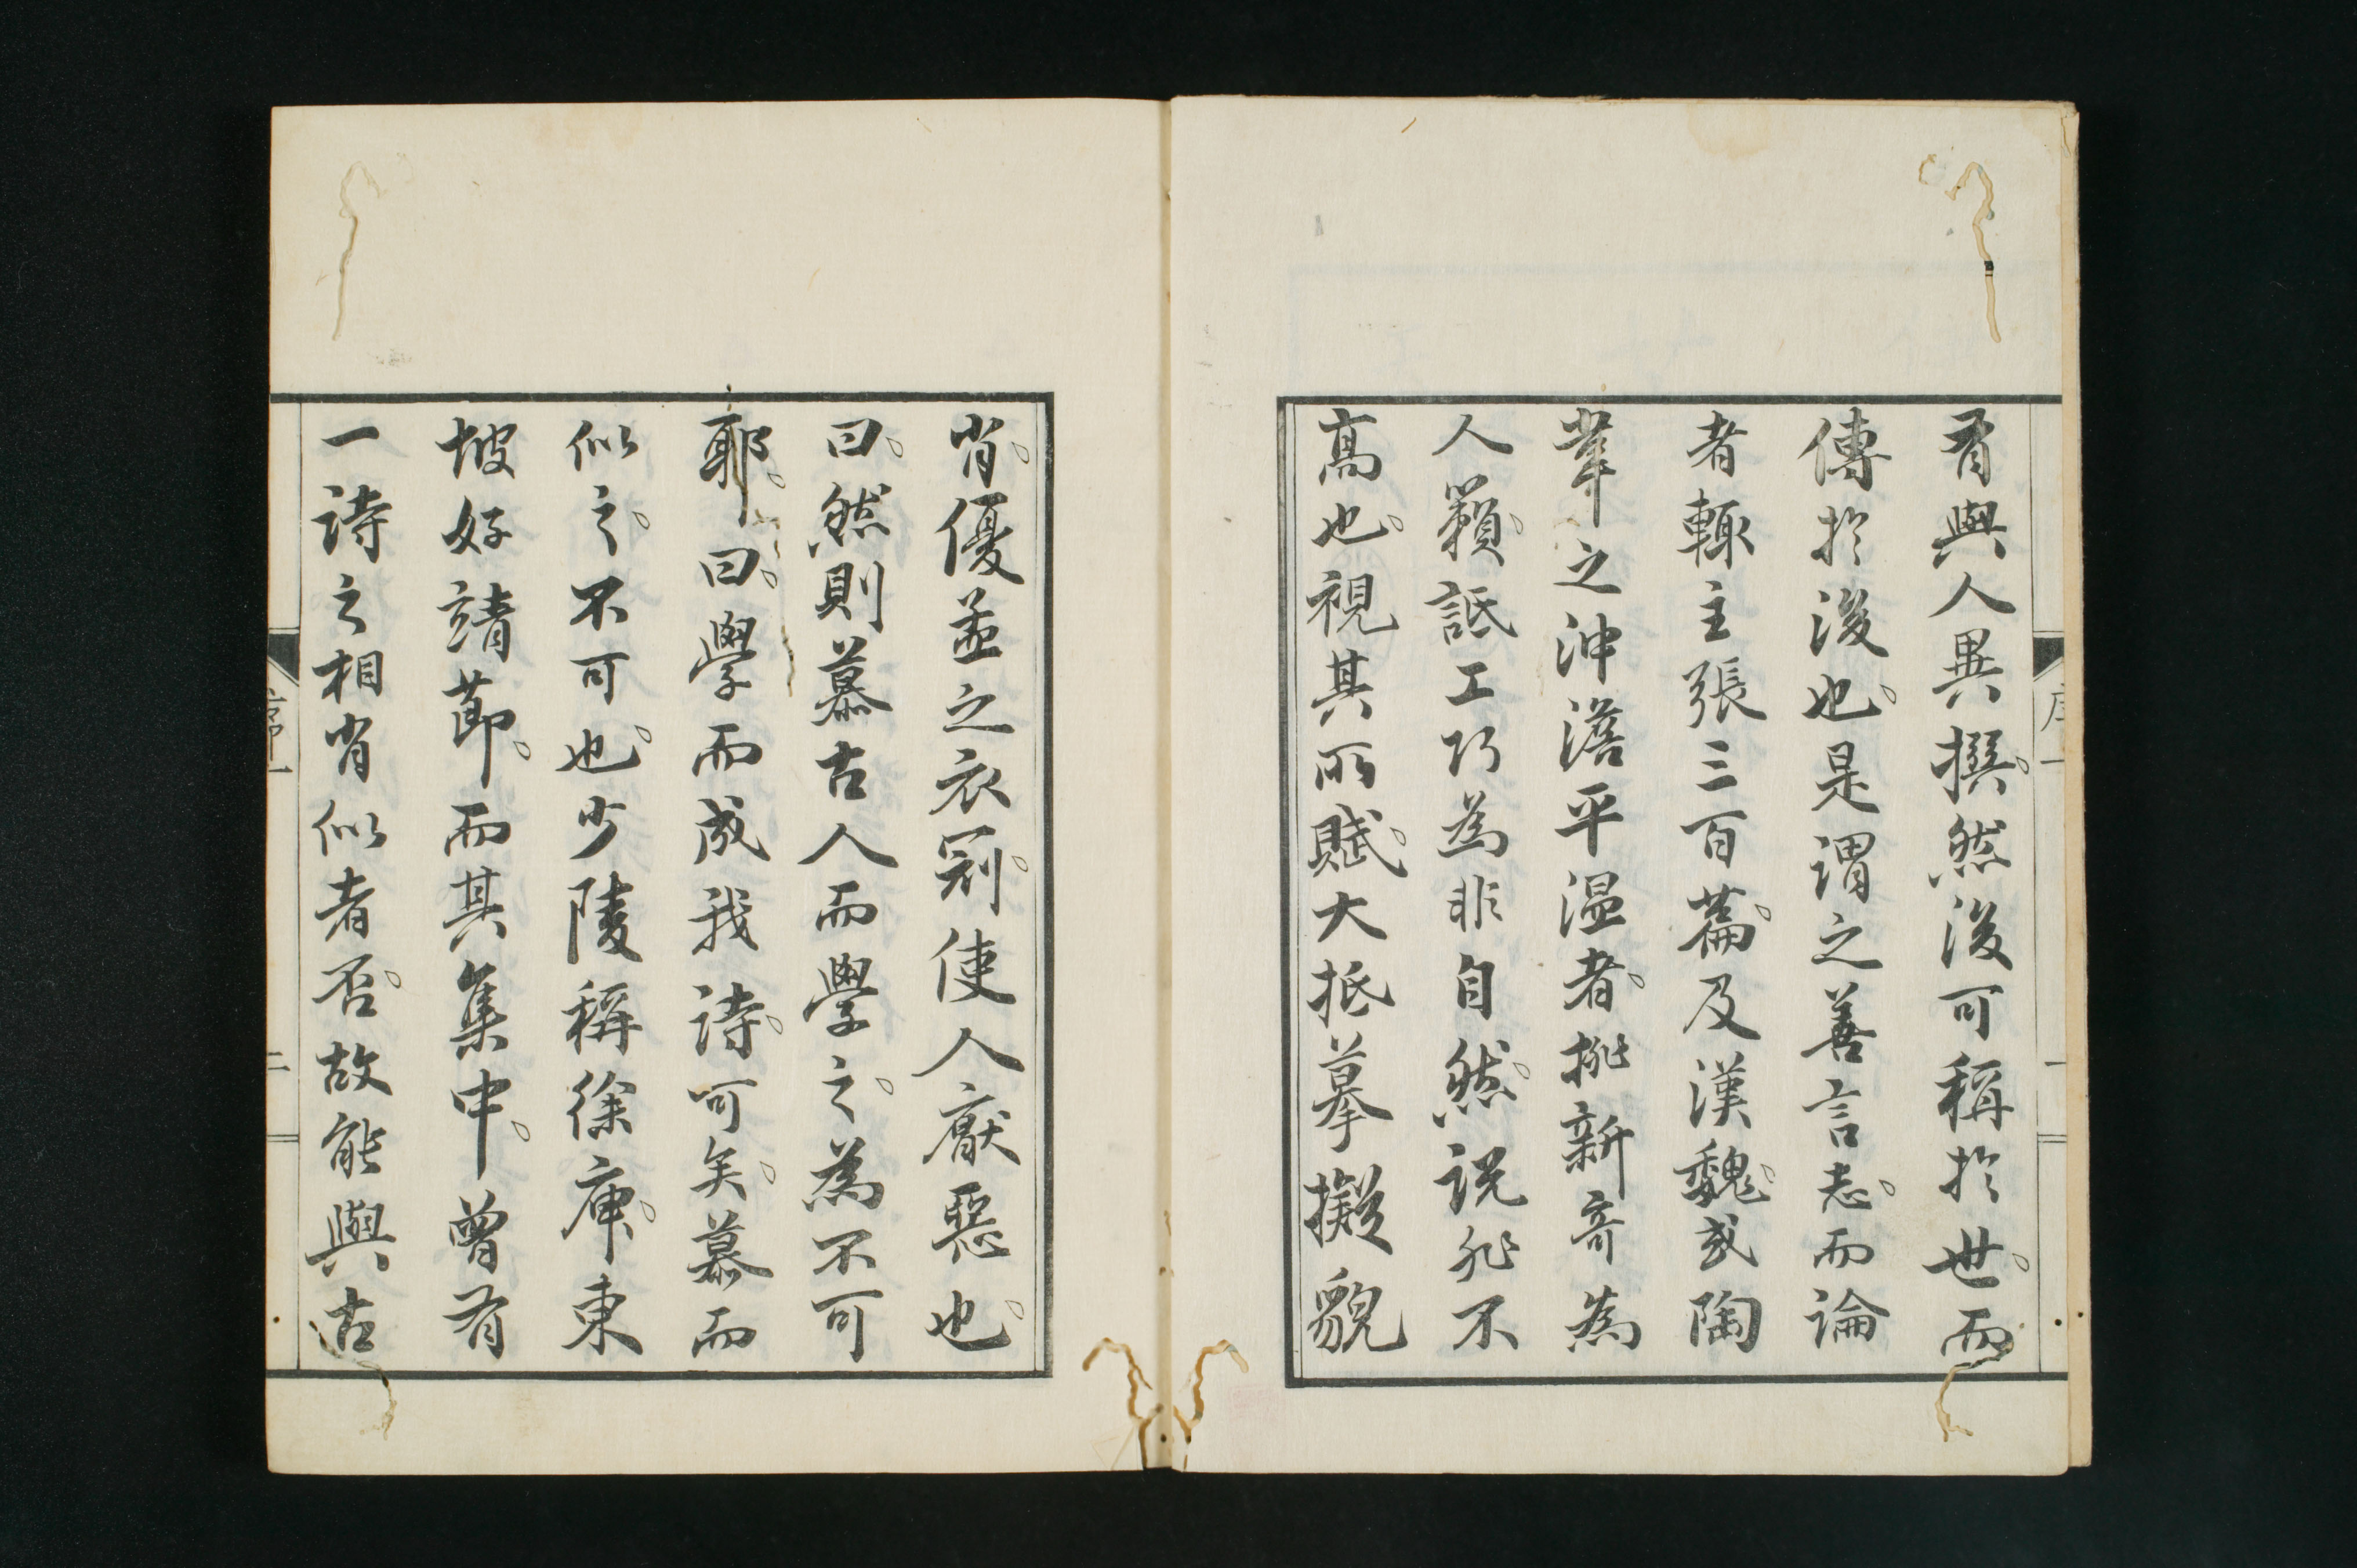 有與人異撰然後可稱於世而
傳於後也是謂之善言志而論
者輙主張三百篇及漢魏或陶
韋之沖澹平温者挑新奇為
人籟詆工巧為非自然説非不
高也視其所賦大抵摹擬貌
肖優孟之衣冠使人厭惡也
曰然則慕古人而學之為不可
耶曰學而成我詩可矣慕而
似之不可也少陵稱徐庾東
坡好靖節而其集中曾有
一詩之相肖似者否故能與古
序
一
序
二